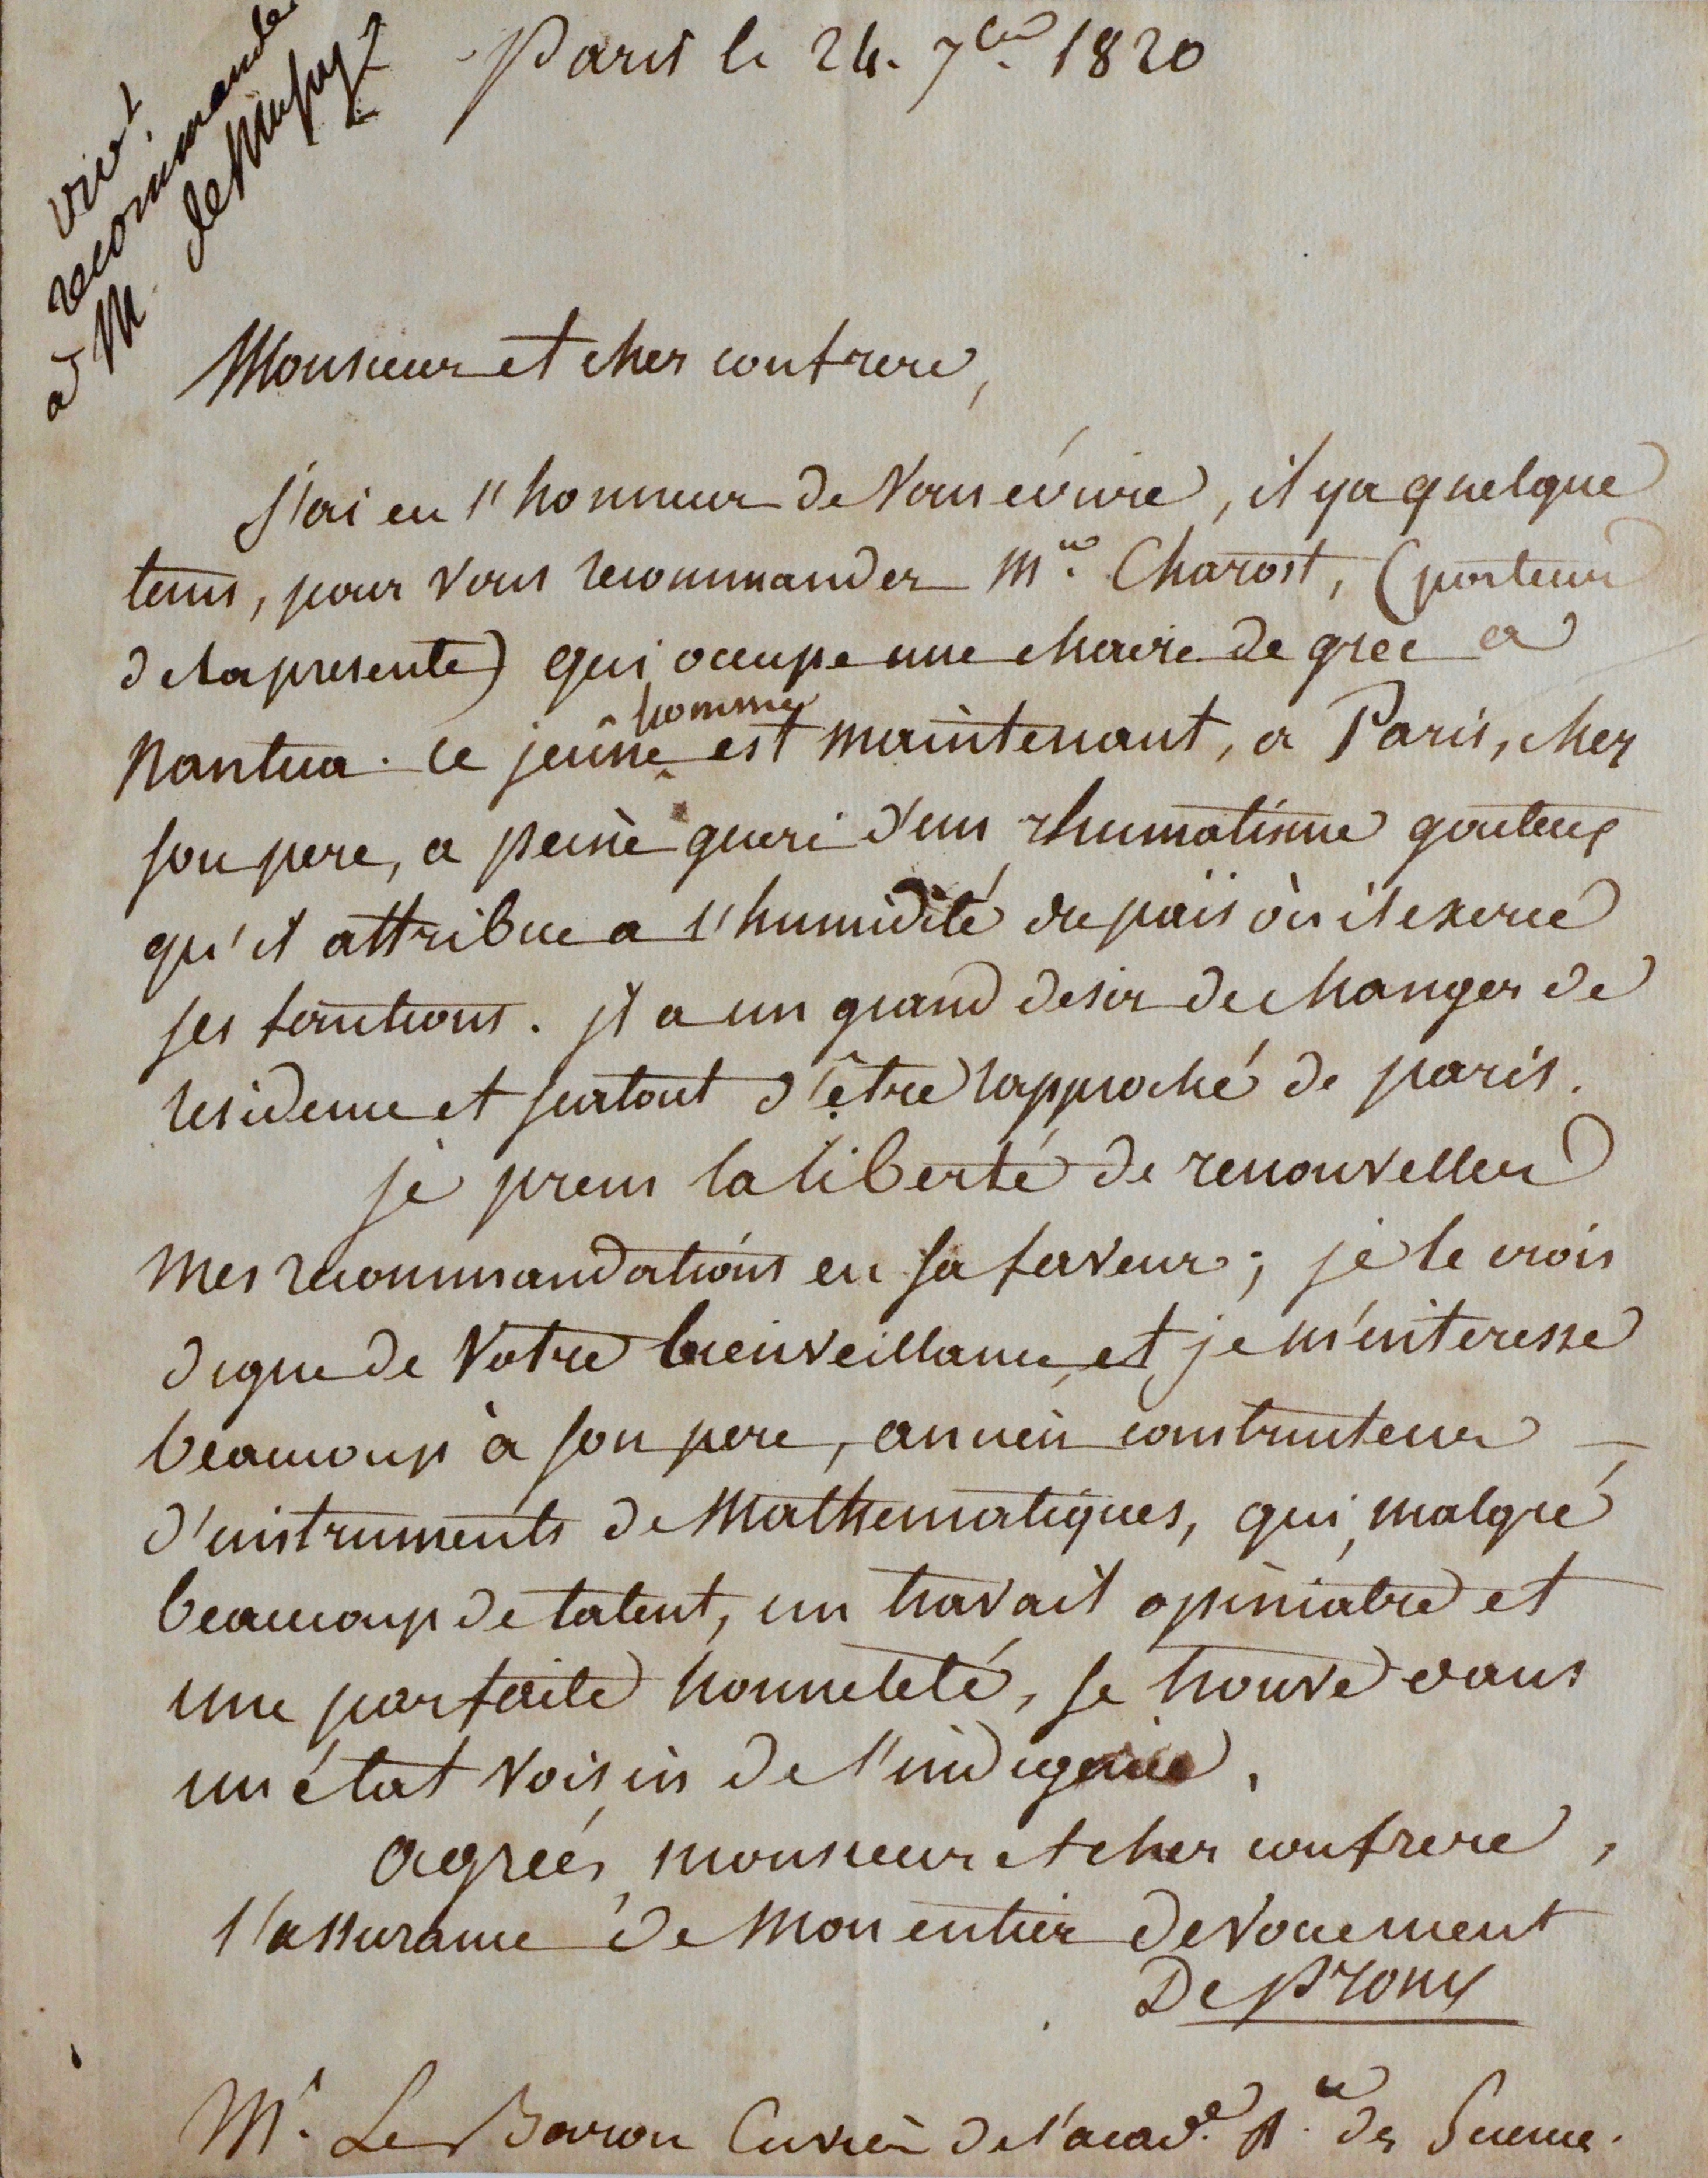 vive!
recommandé
à M
Paris le 24. 7bre 1820
Monsieur et cher confrere,
J'ai eu l'honneur de Vous écrire, il y a quelque
tems, pour Vous recommander Mr. Charost, (porteur
de la presente) qui occupe une chaire de grec a
Nantua. Ce jeune homme est maintenant, a Paris, chez
son pere, a peine gueri d'un rhumatisme gouteux
qu'il attribue a l'humidité du païs où il exerce
ses fonctions. il a un grand desir de changer de
residence et surtout d'être rapproché de paris.
je prens la liberté de renouveller
mes recommandations en sa faveur; je le crois
digne de Votre bienveillance et je m'interesse
beaucoup à son pere, ancien constructeur
d'instruments de Mathematiques, qui, malgré
beaucoup de talent, un travail opiniatre et
une parfaite honneteté, se trouve dans
un état Voisin de l'indigence.
agréés, monsieur et cher confrere,
l'assurance de Mon entier devouement
De Prony
Mr. Le Baron Cuvier de l'acade. Rle des Scienc.